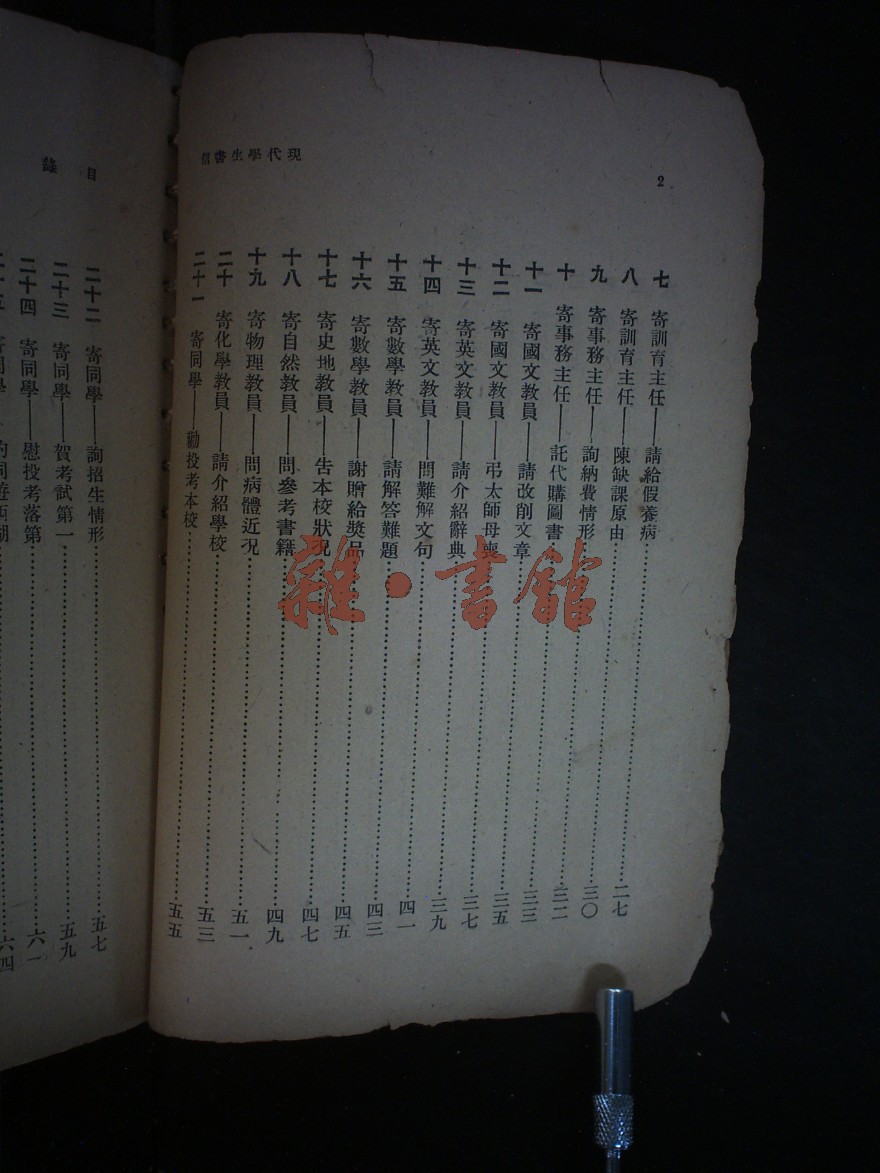 現代學生書信
2
七 寄訓育主任——請給假養病……二七
八 寄訓育主任——陳缺課原由……三〇
九 寄事務主任——詢納費情形……三二
十 寄事務主任——託代購圖書……三三
十一 寄國文教員——請改削文章……三五
十二 寄國文教員——弔太師母喪……三七
十三 寄英文教員——請介紹辭典……三九
十四 寄英文教員——問難解文句……四一
十五 寄數學教員——請解答難題……四三
十六 寄數學教員——謝贈給獎品……四五
十七 寄史地教員——告本校狀況……四七
十八 寄自然教員——問參考書籍……四九
十九 寄物理教員——問病體近況……五一
二十 寄化學教員——請介紹學校……五三
二十一 寄同學——勸投考本校……五五
目錄
二十二 寄同學——詢招生情形……五七
二十三 寄同學——賀考試第一……五九
二十四 寄同學——慰投考落第……六一
二十五 寄同學——約同遊西湖……六四
雜·書館